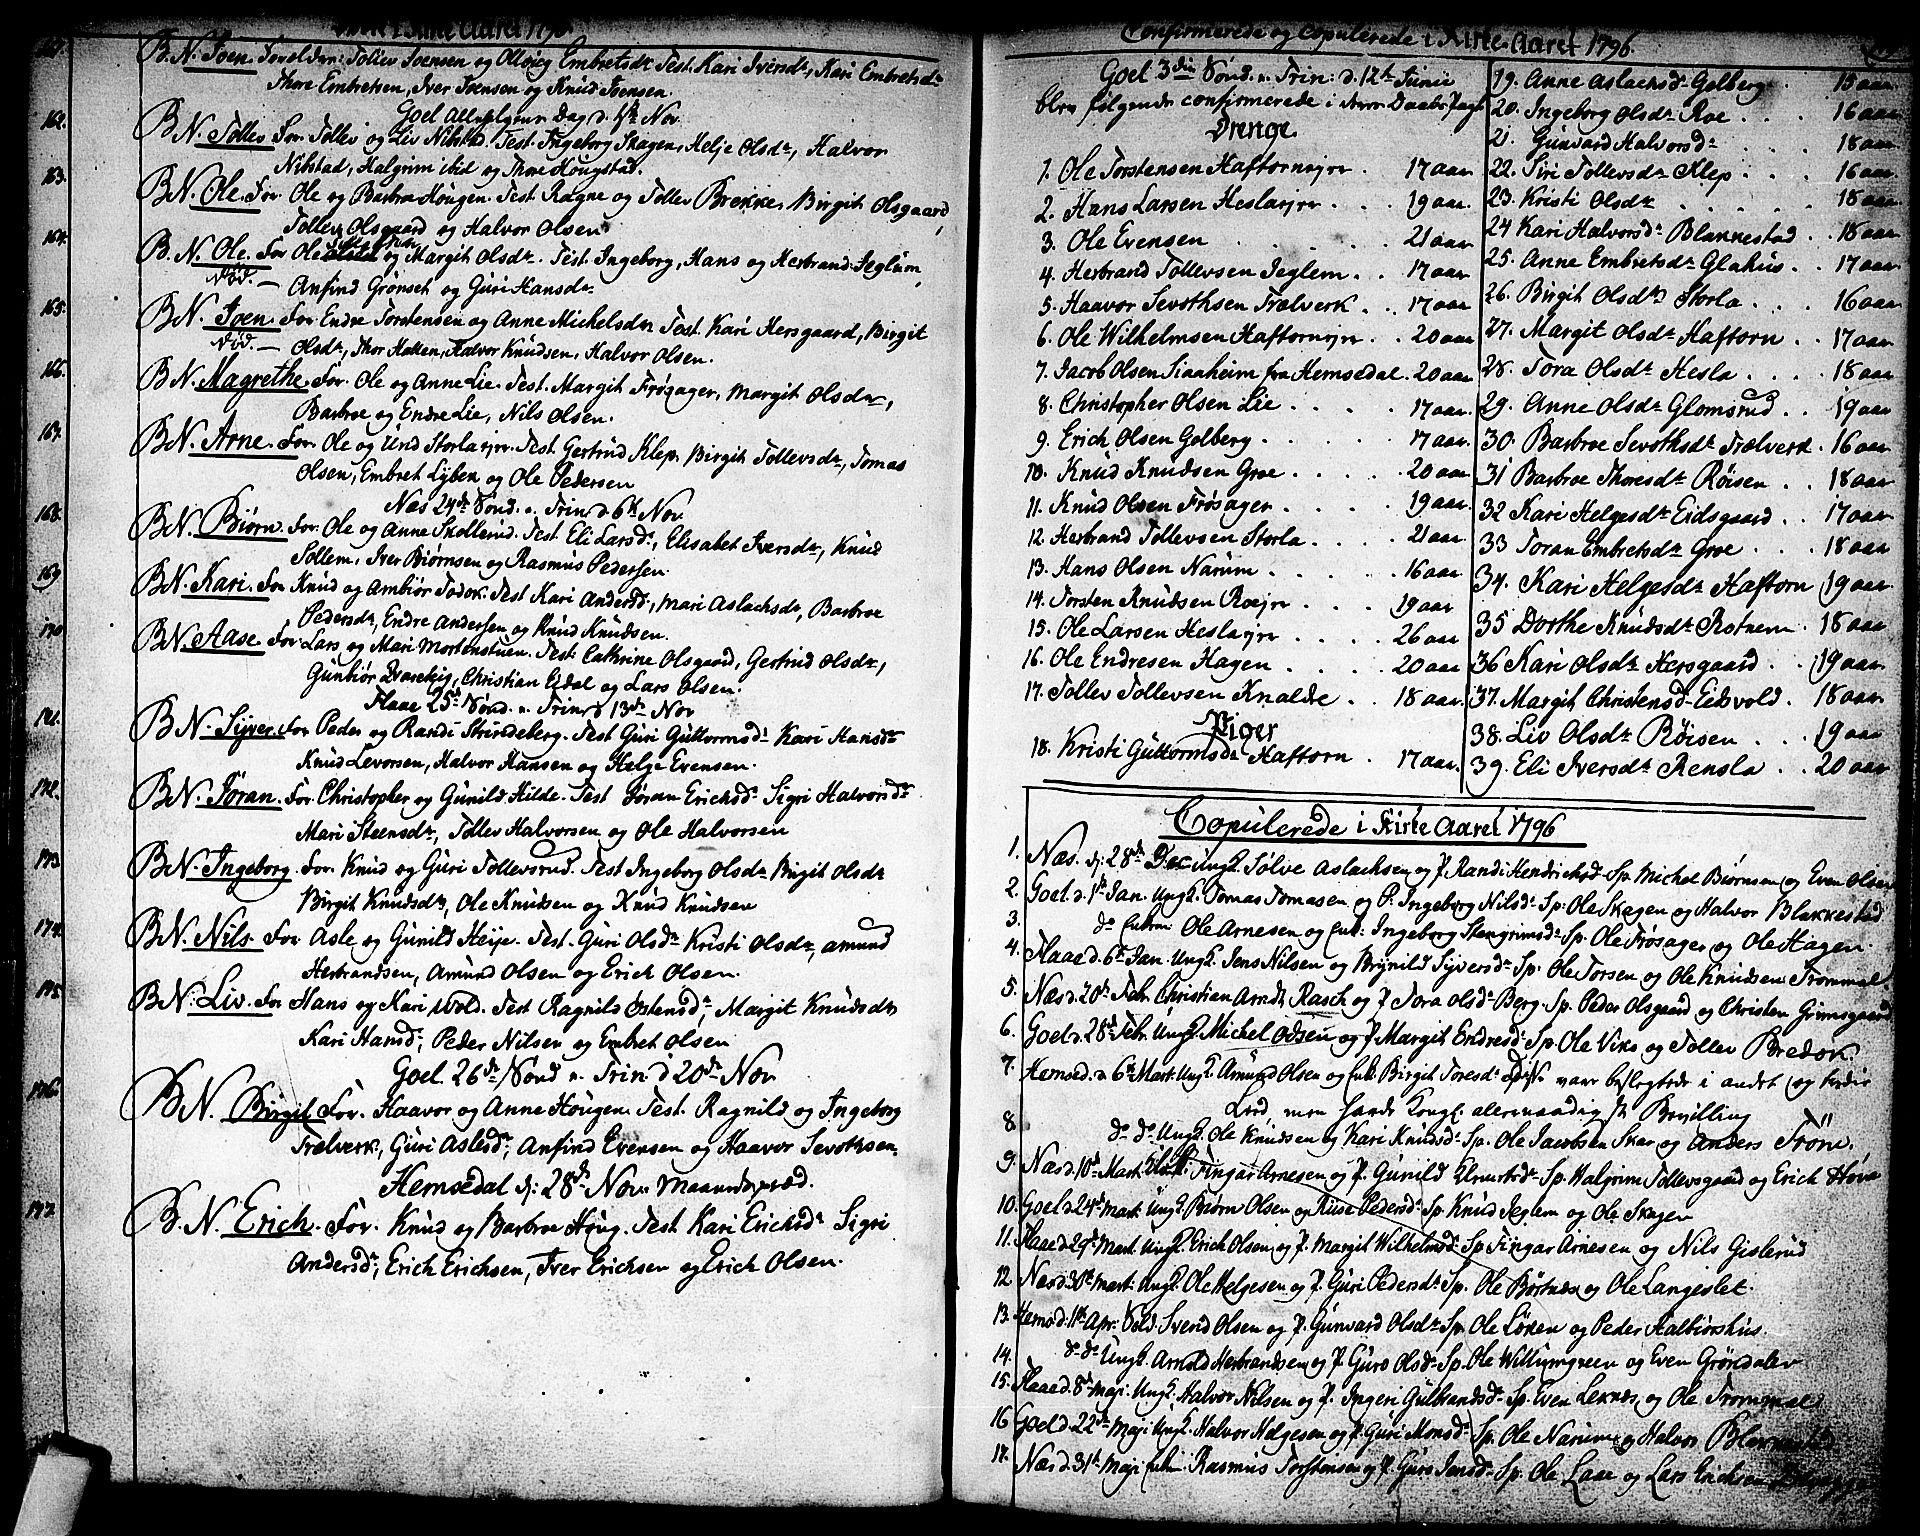 161. B.N. Joen. Forældre: Tollev Joensen og Olloug Embretsdr Test. Kari Iversdr, Kari Embretsdr
Thore Embretsen, Iver Joensen og Knud Joensen.
Goel Allehelgens Dag d. 1te Nov.
162. B.N. Tollev For. Tollev og Liv Nibstad. Test. Ingeborg Skagen, Helje Olsdr, Halvor
Nibstad, Halgrim ibid og Thore Hougstad.
163. B.N. Ole. For Ole og Barbroe Hougen. Test. Ragne og Tollev Brekke, Birgit Olsgaard,
Tollev Olsgaard og Halvor Olsen
164. B.N. Ole. For Ole og Margit Olsdr. Test. Ingeborg, Hans og Herbrand Jeglum,
død. — Anfind Grönset og Guri Hansdr
165. B.N. Joen. For Endre Torstensen og Anne Michelsdr Test. Kari Hersgaard, Birgit
død. — Olsdr, Thor Hotten, Halvor Knudsen, Halvor Olsen.
166. B.N. Magrethe. For. Ole og Anne Lie. Test. Margit Frøsager, Margit Olsdr,
Barbroe og Endre Lie, Nils Olsen.
167. B.N. Arne. For. Ole og Und Storlaejer. Test Gertrud Klep, Birgit Tollevsdr, Tomas
Olsen, Embret Lyben og Ole Pedersen
Næs 24de Sönd. p. Trin. d 6te Nov
168. B.N. Biørn. For. Ole og Anne Skollerud. Test. Eli Larsdr, Elisabet Iversdr, Knud
Sollem, Iver Biørnsen og Rasmus Pedersen.
169 B.N. Kari. For Knud og Ambiør Todok. Test Kari Andersdr, Mari Aslachsdr, Barbroe
Pedersdr, Endre Andersen og Knud Knudsen.
170 B.N. Aase. For. Lars og Mari Mortenstuen. Test. Cathrine Olsgaard, Gertrud Olsdr,
Gunbiør, Christian Eidal og Lars Olsen.
Flaae 25de Sönd. p. Trin. d 13de Nov
171. B.N. Syver. For Peder og Randi Strindeberg. Test Guri Guttormsdr Kari Hansdr
Knud Levorsen, Halvor Hansen og Helge Evensen.
172. B.N. Jöran. For Christopher og Gunild Hilde. Test Jöran Erichsdr Sigri Halvorsdr
Mari Steensdr, Tollev Halvorsen og Ole Halvorsen
173. B.N. Ingeborg. For. Knud og Guri Tollevsrud. Test Ingeborg Olsdr Birgit Olsdr
Birgit Knudsdr, Ole Knudsen og Knud Knudsen
174. B.N. Nils. For Asle og Gunild Heije. Test. Guri Olsdr Kristi Olsdr, Amund
Herbrandsen, Amund Olsen og Erich Olsen.
175. B.N. Liv. For Hans og Kari Wold. Test Ragnild Ostensdr, Margit Knudsdr
Kari Hansdr, Peder Nilsen og Embret Olsen
Goel. 26de Sönd p. Trin d 20de Nov
176. B.N. Birgit For. Haavor og Anne Hougen. Test. Ragnild og Ingeborg
Trælverk, Guri Aslesdr, Anfind Evensen og Haavor Sevothsen.
Hemsedal d: 28de Nov.
177. B.N. Erich. For. Knud og Barbroe Houg. Test Kari Erichsdr Sigri
Andersdr, Erich Erichsen, Iver Erichsen og Erich Olsen.
Confirmerede og Copulerede i Kirke Aaret 1796.
Goel 3die Sönd. p. Trin: d. 12te Junii
blev følgende confirmerede i deres Daabs Pagt
Drenge.
1. Ole Torstensen Haftornejer . 17 aar
2. Hans Larsen Heslaejer . . . 19 aar.
3. Ole Evensen . . . . 21 aar
4. Herbrand Tollevsen Jeglem . . 17 aar
5. Haavor Sevothsen Trælverk . . 17 aar
6. Ole Wilhelmsen Haftornejer . . 20 aar
7. Jacob Olsen Siaaheim fra Hemsedal. 20 aar
8. Christopher Olsen Lie . . . . 17 aar.
9. Erich Olsen Golberg . . . . 17 aar.
10. Knud Knudsen Groe . . . . 20 aar
11. Knud Olsen Frøsager . . . . 19 aar.
12. Herbrand Tollevsen Storla . . . 21 aar
13. Hans Olsen Narum . . . . 16 aar
14. Torsten Knudsen Roejer . . . 19 aar
15. Ole Larsen Heslaejer . . . . 26 aar
16. Ole Endresen Hagen . . . . 20 aar
17. Tollev Tollevsen Knalde . . 18 aar
Piger
18. Kristi Guttormsdr Haftorn . 17 aar.
19. Anne Aslachsdr Golberg . 15 aar
20. Ingeborg Olsdr Roe . . . 16 aar
21. Gunvard Halvorsdr . . . 18 aar
22. Siri Tollevsdr Klep . . . 16 aar
23. Kristi Olsdr . . . . 18 aar
24 Kari Halvorsdr Blakkestad . . 18 aar
25. Anne Embretsdr Glahus . . 17 aar
26. Birgit Olsdr Storla . . . 16 aar
27. Margit Olsdr Haftorn . . 17 aar
28. Tora Olsdr Hesla . . . 18 aar
29. Anne Olsdr Glomsrud . . 19 aar
30. Barbroe Sevothsdr Trælverk . 16 aar
31 Barbroe Thoresdr Röisen . . 18 aar
32 Kari Helgesdr Eidsgaard . . 17 aar
33 Joran Embretsdr Groe . . . 18 aar
34. Kari Helgesdr Haftorn 19 aar
35 Dorthe Knudsdr Rotnem . 18 aar
36 Kari Olsdr Hersgaard . . 19 aar
37. Margit Christensdr Eidsvold . 18 aar
38. Liv Olsdr Röisen . . 19 aar
39. Eli Iversdr Rensla . . 20 aar
Copulerede i Kirke Aaret 1796
1. Næs. d: 28de Dec. Ungk. Sölve Aslachsen og P. Randi Hendrichsdr Sp. Michel Biørnsen og Even Olsen
2. Goel d. 1te Jan. Ungk. Tomas Tomasen og P. Ingeborg Nilsdr Sp: Ole Skagen og Halvor Blakkestad
3. do Enkem Ole Arnesen og Enk: Ingeborg Stengrimsdr Sp. Ole Frøsager og Ole Hagen.
4. Flaae d. 6te Jan. Ungk. Jens Nilsen og Brynild Syversdr Sp. Ole Torsen og Ole Knudsen Trommal
5. Næs d. 20de Febr. Christian Arndt Rasch og P Tora Olsdr Berg. Sp. Peder Olsgaard og Christen Grimsgaard
6. Goel d. 28de Febr. Ungk. Michel Odsen og P. Margit Endresdr Sp. Ole Viko og Tollev Bredok.
7. Hemsed. d 6te Mart. Ungk. Amund Olsen og Enk. Birgit Toresdr vare beslegtede i andet og tredie
Leed, men havde Kongl: allernaadigste Bevilling
8. do do Ungk. Ole Knudsen og Kari Knudsdr Sp. Ole Jacobsen Skar og Anders Tröne.
9. Næs d. 10de Mart. Fingar Arnesen og P. Gunild Elmersdr Sp. Halgrim Tollevsgaard og Erich Hove
10. Goel d. 24de Mart. Ungk. Biørn Olsen og Pedersdr Sp. Knud Jeglem og Ole Skagen
11. Flaae d 29de Mart. Ungk. Erich Olsen og P. Margit Wilhelmsdr Sp Fingar Arnesen og Nils Gislerud
12. Næs d. 30te Mart. Ungk. Ole Helgesen og P. Guri Pedersdr Sp. Ole Börtnæs og Ole Langeslet.
13. Hemsd. 11te Apr. Sold. Sverid Olsen og P. Gunvard Olsdr Sp. Ole Løken og Peder Aalbiørshus.
14. do do Ungk. Arnold Herbrandsen og P. Guro Olsdr Sp. Ole Williumgreen og Even Gröndalen
15. Flaae d. 8de Maji. Ungk. Halvor Nilsen og P. Ingeri Gulbrandsdr Sp. Even Leknes og Ole Trommal
16 Goel d. 22de Maji Ungk. Halvor Helgesen og P. Guri Monsdr Sp. Ole Narum og Halvor Blakkestad
17. Næs d. 31te Maji Enkem. Rasmus Torstensen og P. Guro Jensdr Sp. Ole Laae og Lars Erichsen